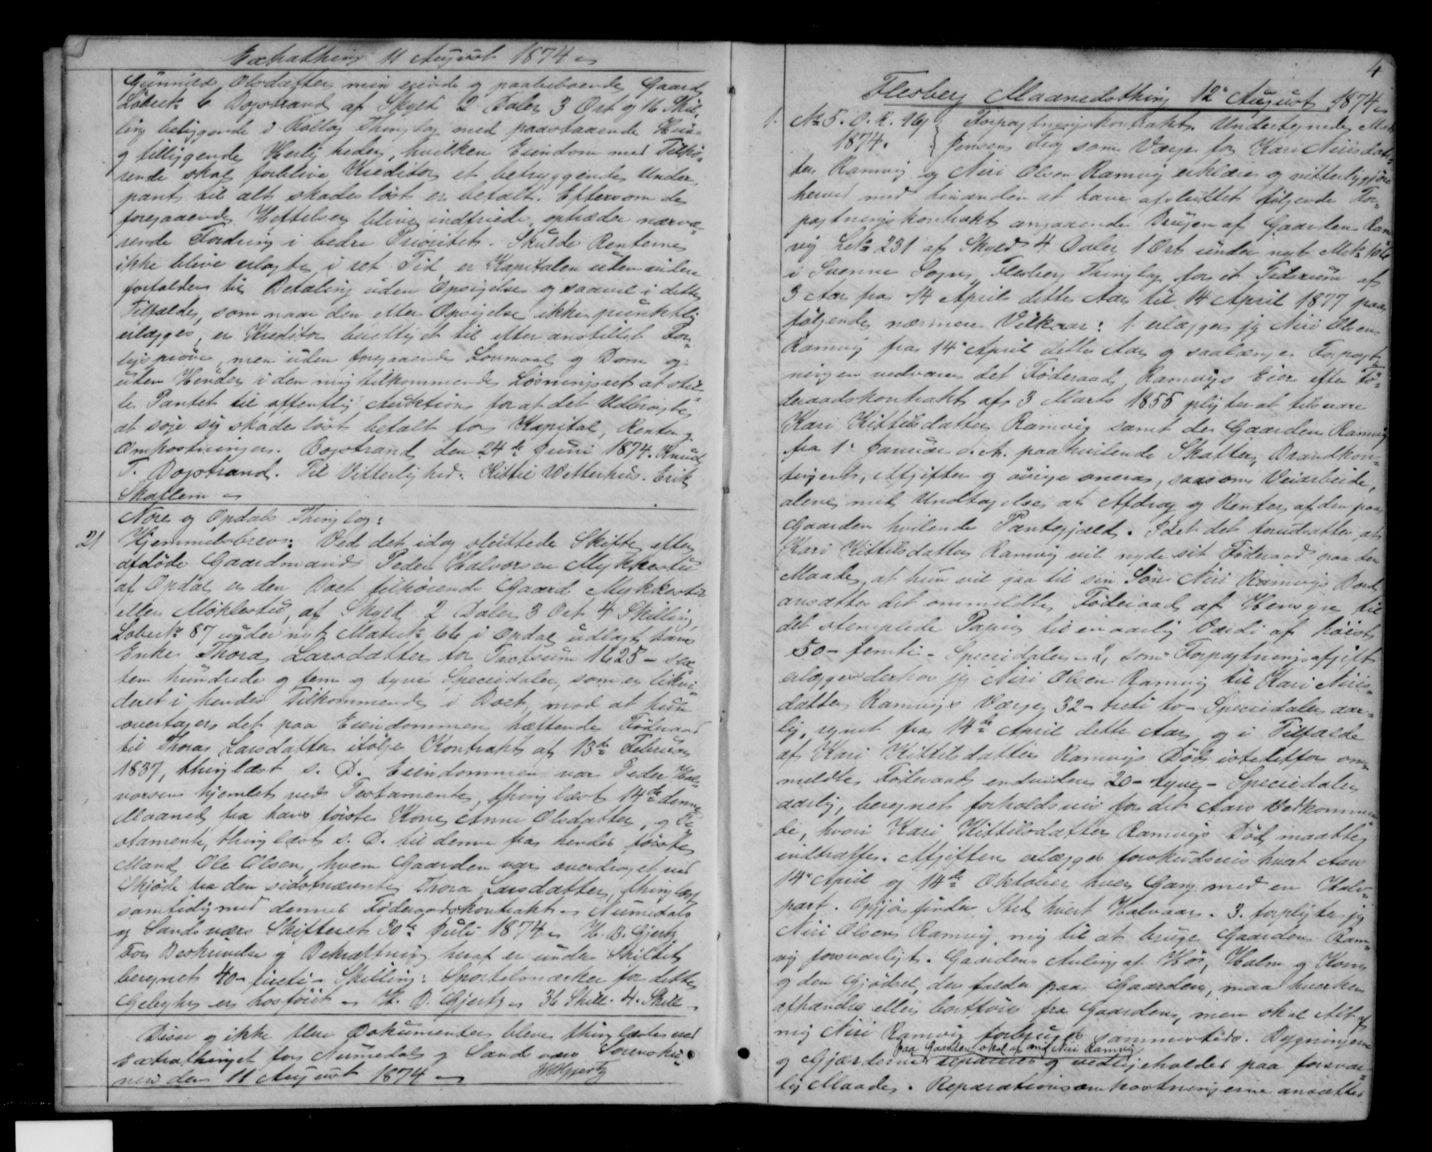 Extrathing 11 August 1874
Gunnild Olsdatter min eiende og paaboende Gaard
Løbe № 6 Bojstrand af Skyld 2 Daler 3 Ort og 16 Skil-
ling beliggende i Rollag Thinglag med paastaaende Huse
og tilliggende Herligheder, hvilken Eiendom med Tilhø-
rende skal forblive Kreditor et betryggende Under-
pant til alt skadesløst er betalt. Eftersom de
foregaaende Heftelser blive indfriede, optræder nærvæ-
rende Fordring i bedre Prioritet. Skulde Renterne
ikke blive erlagte i ret Tid, er Kapitalen uden videre
forfalden til Betaling uden Opsigelse og saavel i dette
Tilfælde, som naar den efter Opsigelse ikke punktlig
erlægges, er Kreditor berettiget til efter anstillet For-
ligsprøve, men uden foregaaende Lovmaal og Dom og
uden Hinder i den mig tilkommende Løsningsret at stil-
le Pantet til offentlig Auktion for af det Udbragte
at søge sig skadesløst betalt for Kapital, Renter og
Omkostninger. Bojstrand den 24de Juni 1874. Knud
T. Bojstrand. Til Vitterlighed: Kittil Vetterhus. Erik
Skallem
Nore og Opdals Thinglag:
21 Hjemmelsbrev: Ved det idag sluttede Skifte efter
afdøde Gaardmand Peder Halvorsen Mykkestu
af Opdal er den Boet tilhørende Gaard Mykkestu
eller Møklestue, af Skyld 2 Daler 3 Ort 4 Skilling,
Løbe № 87 under nyt Matr № 66 i Opdal udlagt hans
Enke Thora Larsdatter for Taxtsum 1625 – sex-
ten hundrede og fem og tyve Speciedaler, som er likvi-
deret i hendes Tilkommende i Boet, mod at hun
overtager det paa Eiendommen hæftende Føderaad
til Thora Larsdatter ifølge Kontrakt af 13de Februar
1837, thinglæst s. D. Eiendommen var Peder Hal-
vorsen hjemlet ved Testamente, thinglæst 14de denne
Maaned fra hans første Kone Anne Olsdatter, og Te-
stamente, thinglæst s. D. til denne fra hendes første
Mand Ole Olsen, hvem Gaarden var overdraget ved
Skjøde fra den sidstnævnte Thora Larsdatter, thinglæst
samtidig med dennes Føderaadskontrakt. Numedals
og Sandsværs Skifteret 30te Juli 1874. H. B. Gjertz
For Beskrivelse og Bekræftning heraf er under Skiftet
beregnet 40 – fireti – Skilling: Sportelmærker for dette
Gebyhr er hosføiet. H. B. Gjertz 36 Skill. 4. Skill
Disse og ikke flere Dokumenter bleve thinglæste ved
Extrathinget for Numedals og Sandsvær Sorenskri-
veri den 11 August 1874
HBGjertz
4
Flesberg Maanedsthing 12te August 1874
1. № 5. O. K. 169 Forpagtningskontrakt. Undertegnede
1874. Jensens Trog som Værge for Kari Niriisdat-
ter Ramvig og Niri Olsen Ramvig erklære og vitterliggjøre
herved med hinanden at have afsluttet følgende For-
pagtningskontrakt angaaende Brugen af Gaarden Ram-
vig Lb № 231 af Skyld 4 Daler 1 Ort under nyt Matr №
i Svenne Sogn, Flesberg Thinglag for et Tidsrum af
3 Aar fra 14 April dette Aar til 14 April 1877 paa
følgende nærmere Vilkaar: 1. erlægger jeg Niri Olsen
Ramvig fra 14 April dette Aar og saalænge Forpagt-
ningen vedvarer det Føderaad, Ramvigs Eier efter Fø-
deraadskontrakt af 3 Marts 1855 pligter at tilsvare
Kari Kittilsdatter Ramvig samt de Gaarden Ramvig
fra 1 Januar d. A. paahvilende Skatter, Brandkon-
tingent, Afgifter og øvrige onera, saasom Veiarbeide,
alene med Undtagelse af Afdrag og Renter af den paa
Gaarden hvilende Pantegjæld. Idet det forudsættes at
Kari Kittilsdatter Ramvig vil nyde sit Føderaad paa den
Maade, at hun vil gaa til sin Søn Niri Ramvigs Bord
ansættes det ommeldte Føderaad af Hensyn til
det stemplede Papir til en aarlig Værdi af høist
50 – femti – Speciedaler. 2, som Forpagtningsafgift
erlægger derhos jeg Niri Olsen Ramvig til Kari Niriis-
datter Ramvigs Værge 32 – treti to – Speciedaler aar-
lig, regnet fra 14de April dette Aar, og i Tilfælde
af Kari Kittilsdatter Ramvigs Død istedetfor om-
meldte Føderaad endvidere 20 – tyve – Speciedaler
aarlig, beregnet forholdsvis for det Aars Vedkommen-
de, hvori Kari Kittilsdatter Ramvigs Død maatte
indtræffe. Afgiften erlægges forskudsvis hvert Aar
14 April og 14de Oktober hver Gang med en Halv-
part. Opgjør finder Sted hvert Halvaar. 3. forpligter jeg
Niri Olsen Ramvig mig til at bruge Gaarden Ram-
vig forsvarligt. Gaardens Avling af Hø, Halm og Korn
og den Gjødsel, der falder paa Gaarden, maa hverken
afhændes eller bortføres fra Gaarden, men skal Alt af
mig Niri Ramvig forbruges sammesteds. Bygningerne
paa Gaarden skal af mig Niri Ramvig
og Gjærderne repareres og vedligeholdes paa forsvar-
lig Maade. Reparationsomkostningerne ansættes